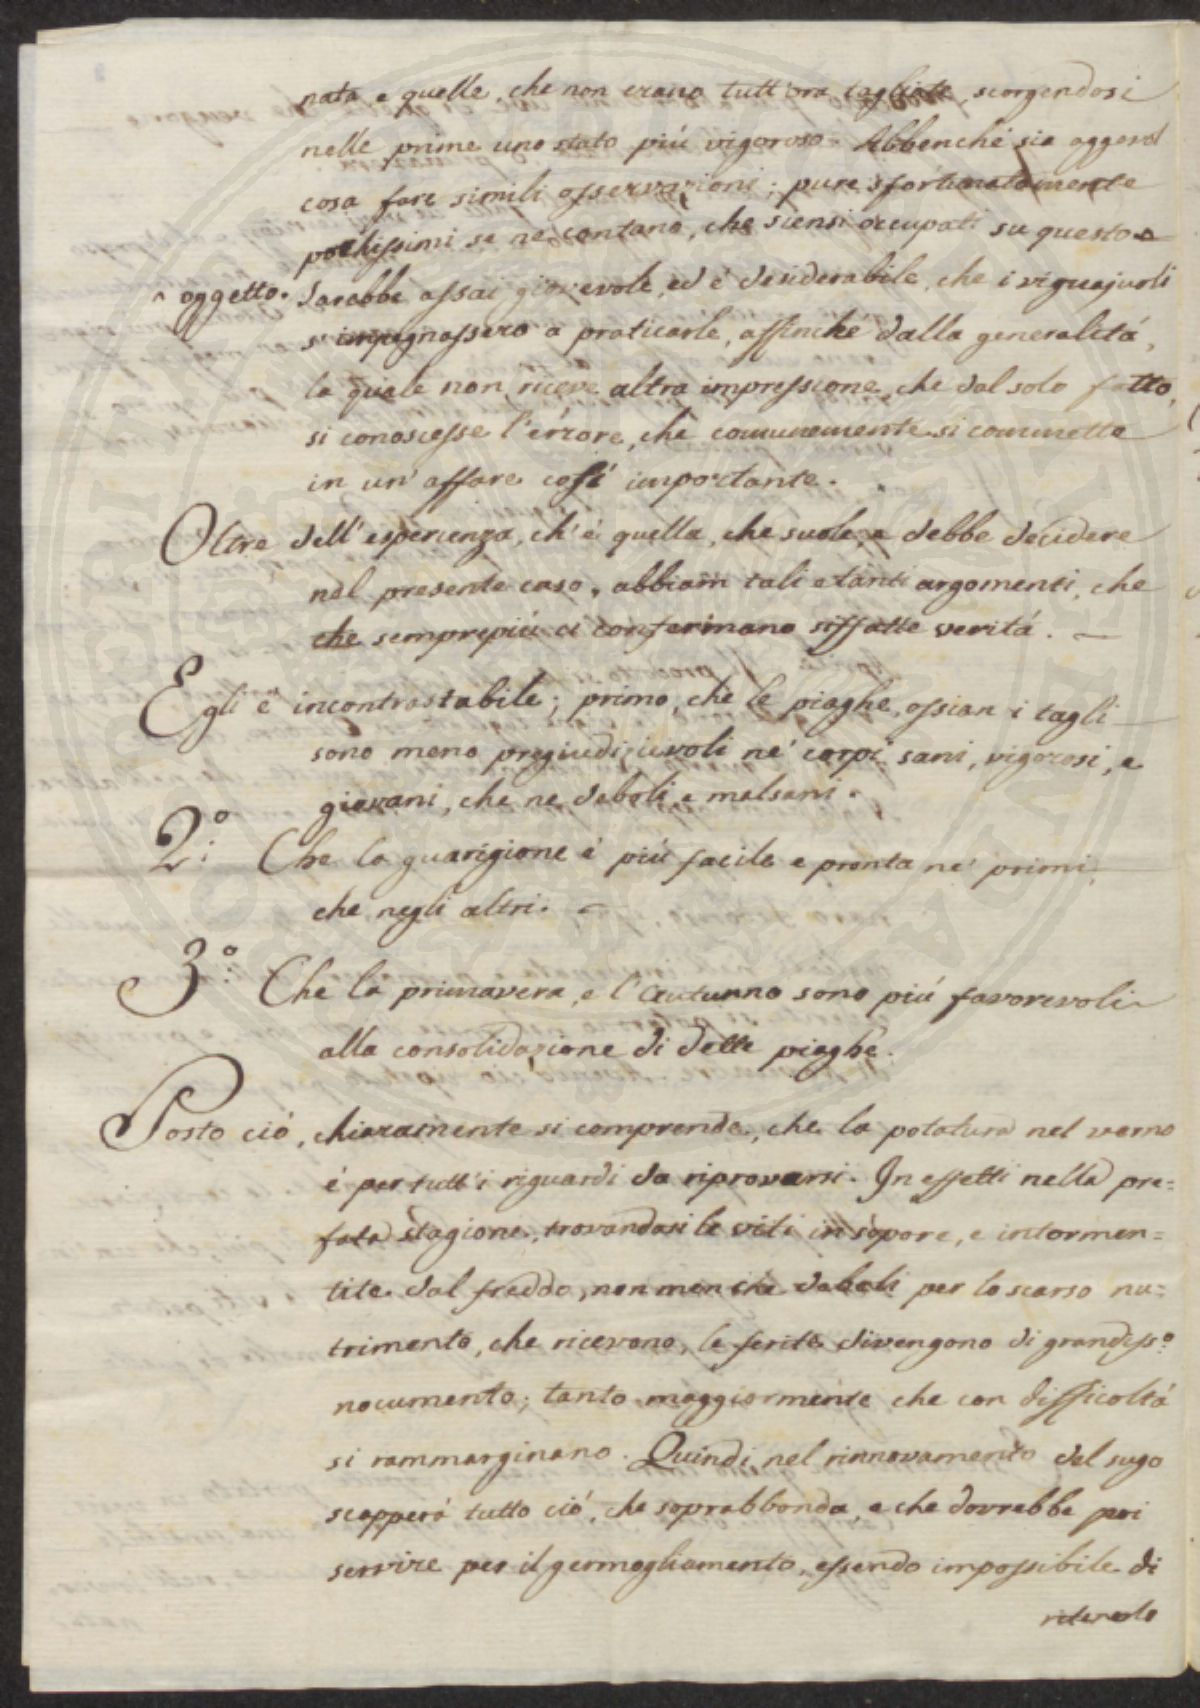 nata, e quelle, che non erano tutt'ora tagliate, scorgendosi
nelle prime uno stato più vigoroso. Abbenché sia aggevol
cosa fare simili osservazioni; pure sfortunatamente
pochissimi se ne contano, che siensi occupati su questo
oggetto. Sarebbe assai giovevole, ed è desiderabile, che i vignajuoli
s'impegnassero a praticarle, affinché dalla generalità,
la quale non riceve altra impressione, che dal solo fatto,
si conoscesse l'errore, che comunemente si commette
in un'affare così importante.
Oltre dell'esperienza, ch'è quella, che suole, e debbe decidere
nel presente caso, abbiam tali e tanti argomenti, che
che semprepiù ci confermano siffatte verità.
Egli è incontrastabile; primo, che le piaghe, ossian i tagli
sono meno pregiudizievoli ne' corpi sani, vigorosi, e
giovani, che ne deboli, e malsani.
2.° Che la guarigione è più facile e pronta ne' primi,
che negli altri.
3.° Che la primavera, e l'autunno sono più favorevoli
alla consolidazione di dette piaghe.
Posto ciò, chiaramente si comprende, che la potatura nel verno
è per tutt'i riguardi da riprovarsi. In effetti nella pre=
fata stagione, trovandosi le viti in sopore, e intormen=
tite dal freddo, non men che deboli per lo scarso nu=
trimento, che ricevono, le ferite divengono di grandiss.°
nocumento; tanto maggiormente che con difficoltà
si rammarginano. Quindi nel rinnovamento del sugo
scapperà tutto ciò, che soprabbonda, e che dovrebbe poi
servire per il germogliamento, essendo impossibile di
ritenerlo